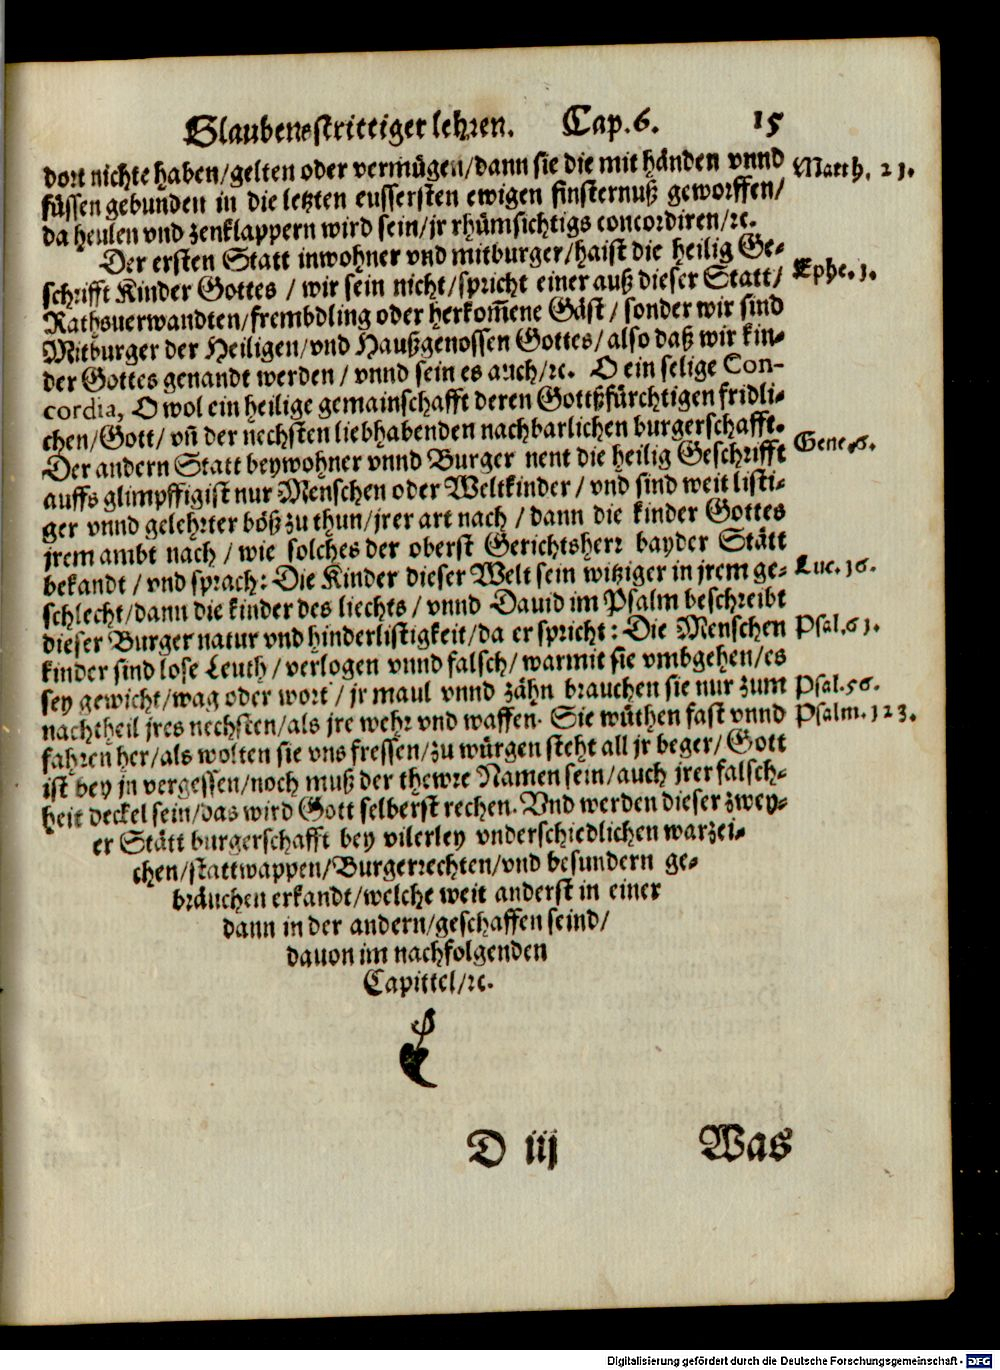 Glaubensstrittiger lehren. Cap. 6. 15
dort nichts haben/gelten oder vermügen/dann sie die mit händen vnnd
Matth. 21.
füssen gebunden in die letzten eussersten ewigen finsternuß geworffen/
da heulen vnd zenklappern wird sein/jr rhümsichtigs concordiren/ꝛc.
Der ersten Statt inwohner vnd mitburger/haist die heilig Ge-
schrifft Kinder Gottes / wir sein nicht/spricht einer auß dieser Statt/
Ephe. 1.
Rathsuerwandten/frembdling oder herkom̃ene Gäst / sonder wir sind
Mitburger der Heiligen/vnd Haußgenossen Gottes/also daß wir kin-
der Gottes genandt werden / vnnd sein es auch/ꝛc. O ein selige Con-
cordia, O wol ein heilige gemainschafft deren Gottßfürchtigen fridli-
chen/Gott/ vñ der nechsten liebhabenden nachbarlichen burgerschafft.
Gene. 6.
Der andern Statt beywohner vnnd Burger nent die heilig Geschrifft
auffs glimpffigist nur Menschen oder Weltkinder / vnd sind weit listi-
ger vnnd gelehrter böß zu thun/jrer art nach / dann die kinder Gottes
jrem ambt nach / wie solches der oberst Gerichtsherr bayder Stätt
bekandt / vnd sprach: Die Kinder dieser Welt sein witziger in jrem ge-
Luc. 16.
schlecht/dann die kinder des liechts / vnnd Dauid im Psalm beschreibt
dieser Burger natur vnd hinderlistigkeit/da er spricht: Die Menschen
Psal. 61.
kinder sind lose Leuth / verlogen vnnd falsch/ warmit sie vmbgehen/es
sey gewicht/wag oder wort / jr maul vnnd zähn brauchen sie nur zum
Psal. 56.
nachtheil jres nechsten/als jre wehr vnd waffen. Sie wüthen fast vnnd
Psalm. 123.
fahren her/als wolten sie vns fressen/zu würgen steht all jr beger/ Gott
ist bey jn vergessen/noch muß der thewre Namen sein/auch jrer falsch-
heit deckel sein/das wird Gott selberst rechen. Vnd werden dieser zwey-
er Stätt burgerschafft bey vilerley vnderschiedlichen warzei-
chen/stattwappen/Burgerrechten/vnd besundern ge-
bräuchen erkandt/welche weit anderst in einer
dann in der andern/geschaffen seind/
dauon im nachfolgenden
Capittel/ꝛc.
D iij Was
Digitalisierung gefördert durch die Deutsche Forschungsgemeinschaft - DFG